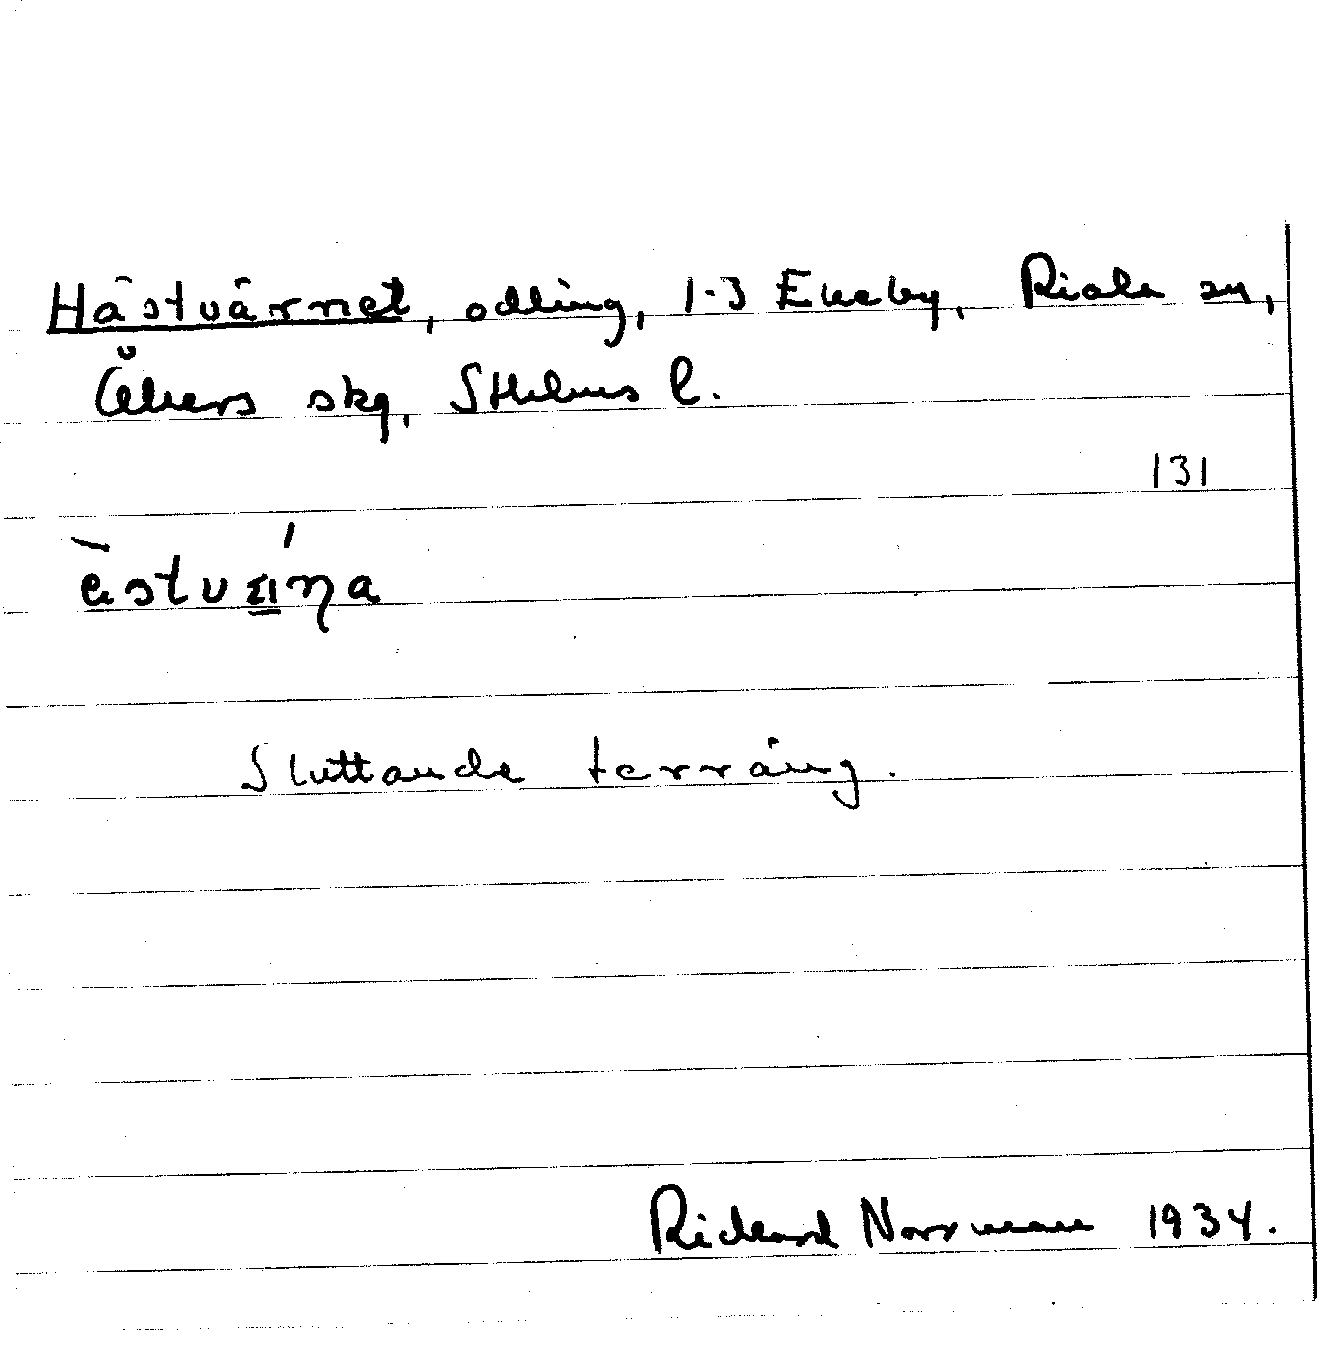 Hästvärnet, odling, 1-3 Ekeby, Riala sn,
Åkers skg, Sthlms l.
131
Sluttande terräng.
Richard Norrman 1934.